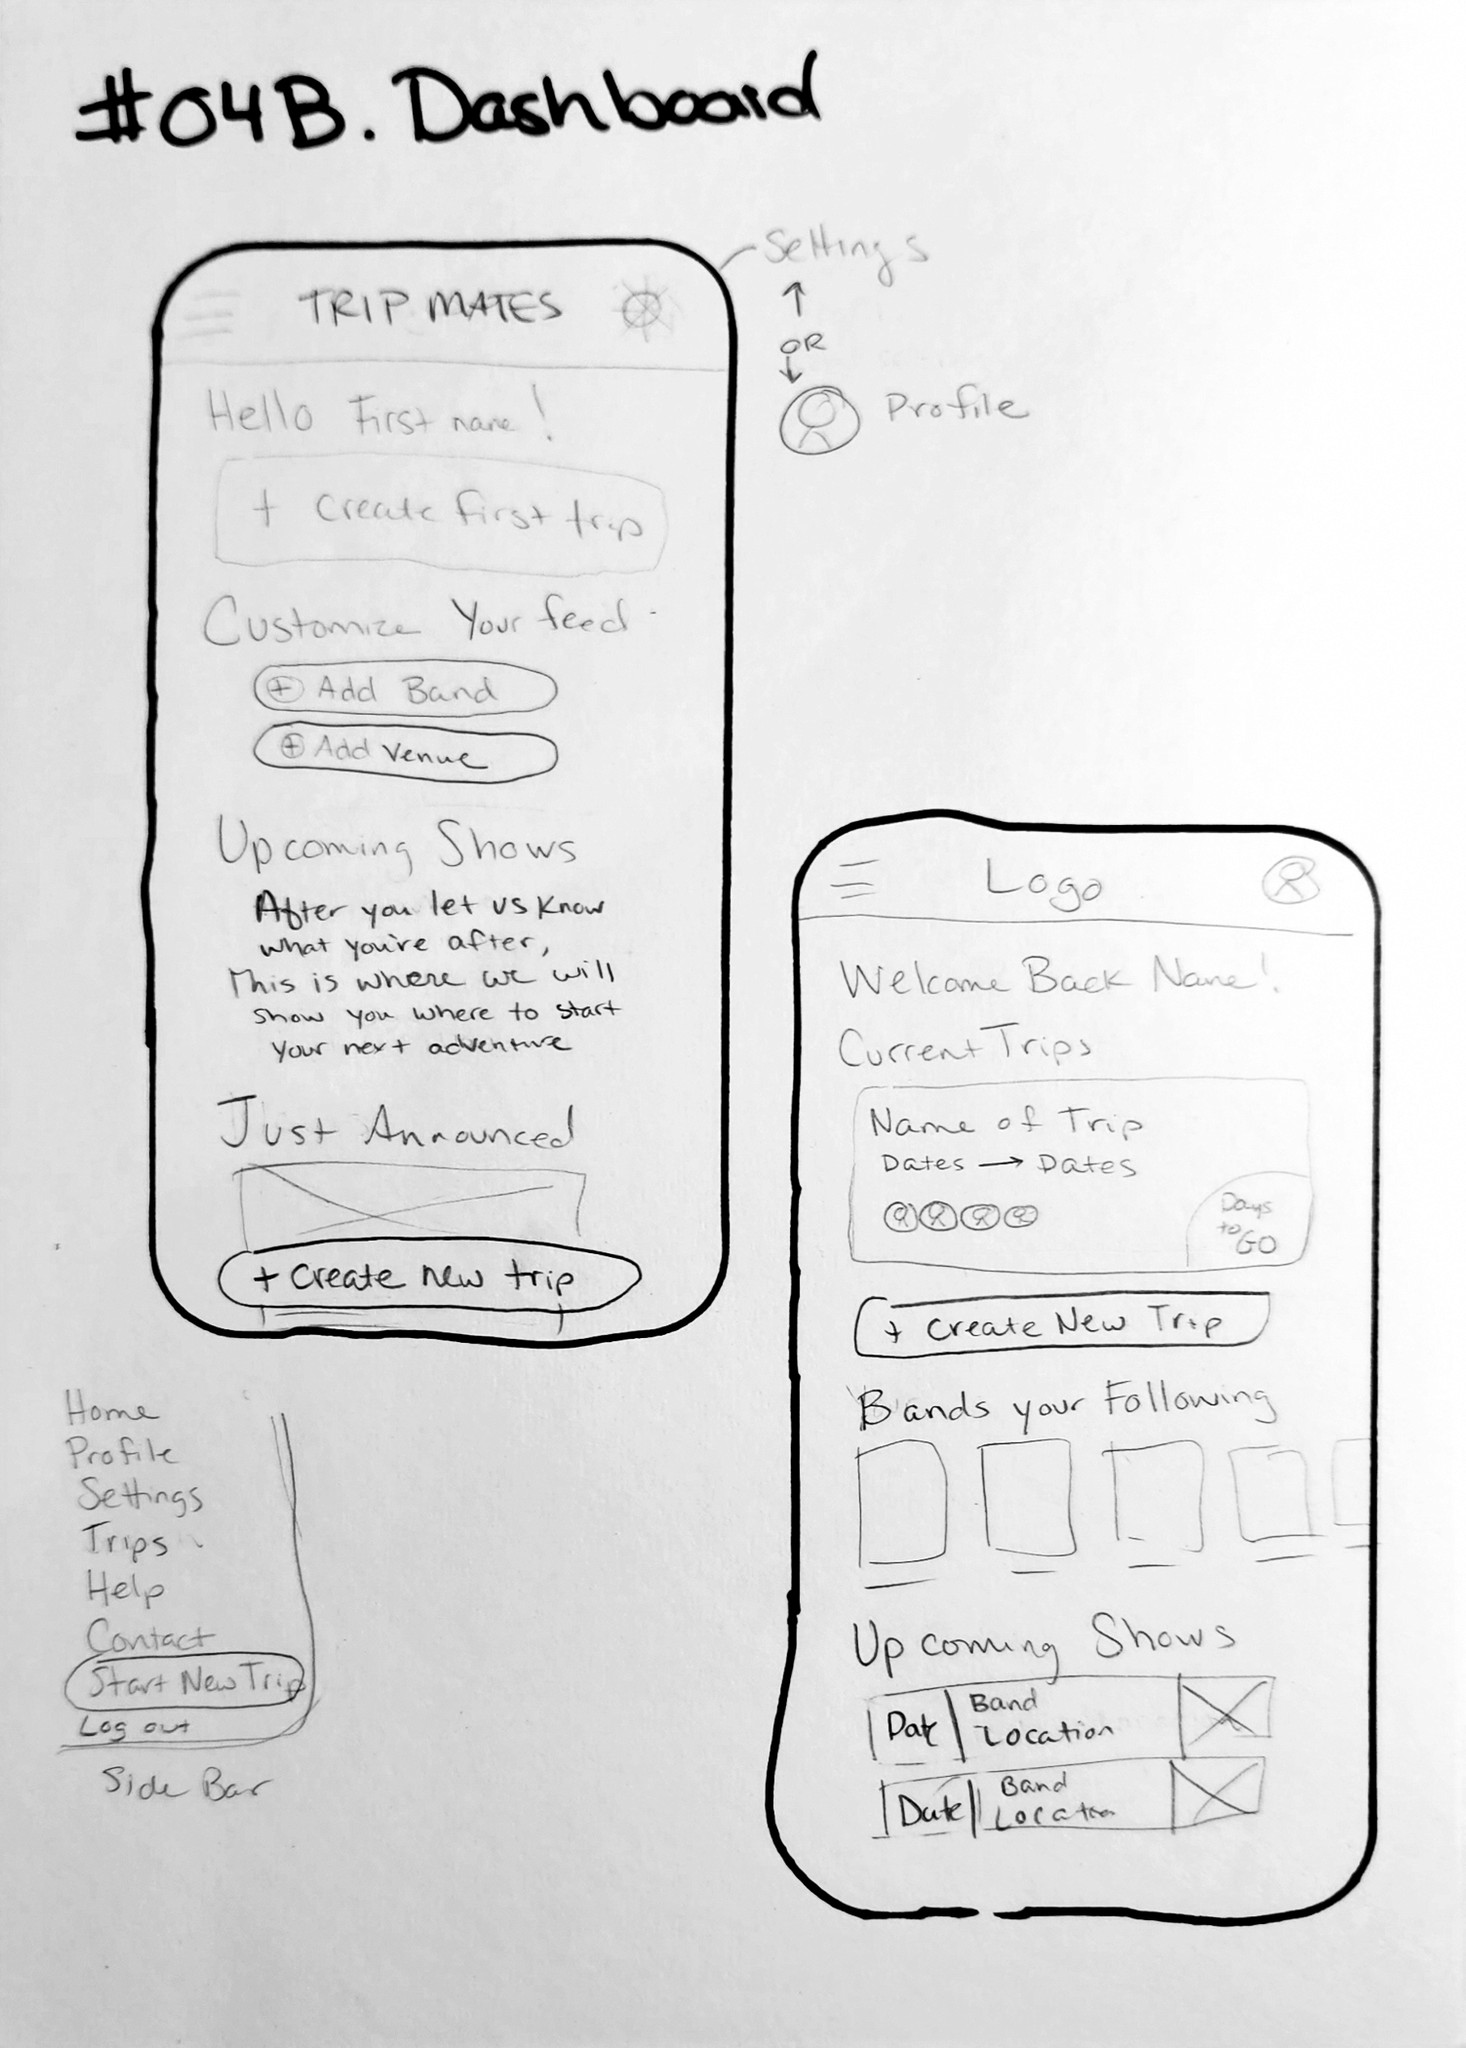 #04B. Dashboard
Settings
OR
Profile
TRIP MATES
Hello First name!
+ Create first trip
Customize Your feed
+ Add Band
+ Add Venue
Upcoming Shows
After you let us know
what you're after,
This is where we will
show you where to start
your next adventure
Just Announced
+ Create new trip
Home
Profile
Settings
Trips
Help
Contact
Start New Trip
Log out
Side Bar
Logo
Welcome Back Name!
Current Trips
Name of Trip
Dates → Dates
Days
to
GO
+ Create New Trip
Bands your Following
Upcoming Shows
Date
Band
Location
Date
Band
Location